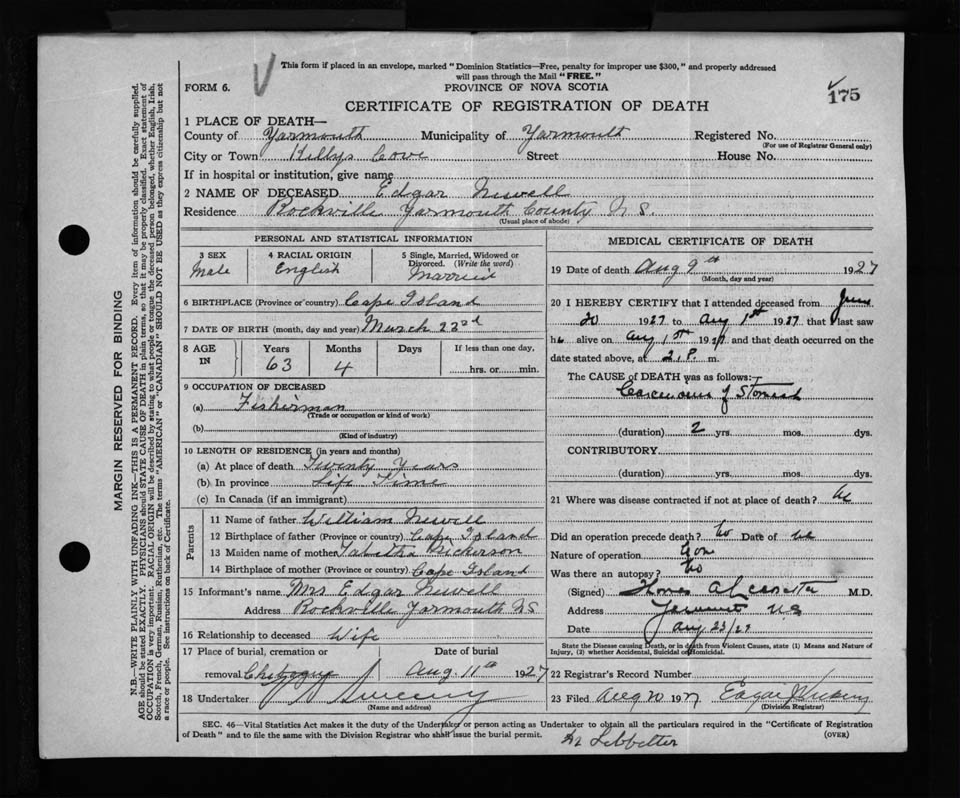 This form if placed in an envelope, marked "Dominion Statistics—Free, penalty for improper use $300," and properly addressed
will pass through the Mail "FREE."
FORM 6. PROVINCE OF NOVA SCOTIA
175
CERTIFICATE OF REGISTRATION OF DEATH
1 PLACE OF DEATH—
County of Yarmouth Municipality of Yarmouth Registered No.
(For use of Registrar General only)
City or Town Kellys Cove Street House No.
If in hospital or institution, give name
2 NAME OF DECEASED Edgar Newell
Residence Rockville Yarmouth County N S.
(Usual place of abode)
PERSONAL AND STATISTICAL INFORMATION
3 SEX 4 RACIAL ORIGIN 5 Single, Married, Widowed or
Divorced. (Write the word)
Male English Married
6 BIRTHPLACE (Province or country) Cape Island
7 DATE OF BIRTH (month, day and year) March 23rd
8 AGE IN Years Months Days If less than one day,
63 4 hrs. or min.
9 OCCUPATION OF DECEASED
(a) Fisherman
(Trade or occupation or kind of work)
(b)
(Kind of industry)
10 LENGTH OF RESIDENCE (in years and months)
(a) At place of death Twenty Years
(b) In province Life Time
(c) In Canada (if an immigrant)
Parents
11 Name of father William Newell
12 Birthplace of father (Province or country) Cape Island
13 Maiden name of mother Tabitha Nickerson
14 Birthplace of mother (Province or country) Cape Island
15 Informant's name Mrs Edgar Newell
Address Rockville Yarmouth NS
16 Relationship to deceased Wife
17 Place of burial, cremation or Date of burial
removal Aug. 11th 1927
18 Undertaker Sweeny
(Name and address)
MEDICAL CERTIFICATE OF DEATH
19 Date of death Aug 9th 1927
(Month, day and year)
20 I HEREBY CERTIFY that I attended deceased from June
20 1927 to Aug 1st 1927 that I last saw
he alive on Aug 1st 1927 and that death occurred on the
date stated above, at 2 P. m.
The CAUSE of DEATH was as follows:—
Carcinoma of Stomach
(duration) 2 yrs. mos. dys.
CONTRIBUTORY
(duration) yrs. mos. dys.
21 Where was disease contracted if not at place of death?
Did an operation precede death? No Date of
Nature of operation
Was there an autopsy? No
(Signed) M.D.
Address Yarmouth N S
Date Aug 23/27
State the Disease causing Death, or in death from Violent Causes, state (1) Means and Nature of
Injury, (2) whether Accidental, Suicidal or Homicidal.
22 Registrar's Record Number
23 Filed Aug 20 1927 Edgar
(Division Registrar)
SEC. 46—Vital Statistics Act makes it the duty of the Undertaker or person acting as Undertaker to obtain all the particulars required in the "Certificate of Registration
of Death" and to file the same with the Division Registrar who shall issue the burial permit. (OVER)
MARGIN RESERVED FOR BINDING
N.B.—WRITE PLAINLY WITH UNFADING INK—THIS IS A PERMANENT RECORD. Every item of information should be carefully supplied.
AGE should be stated EXACTLY. PHYSICIANS should STATE CAUSE OF DEATH in plain terms, so that it may be properly classified. Exact statement of
OCCUPATION is very important. RACIAL ORIGIN will be described by stating to what people or tongue the deceased person belonged, whether English, Irish,
Scotch, French, German, Russian, Ruthenian, etc. The terms "AMERICAN" or "CANADIAN" SHOULD NOT BE USED as they express citizenship but not
a race or people. See instructions on back of Certificate.